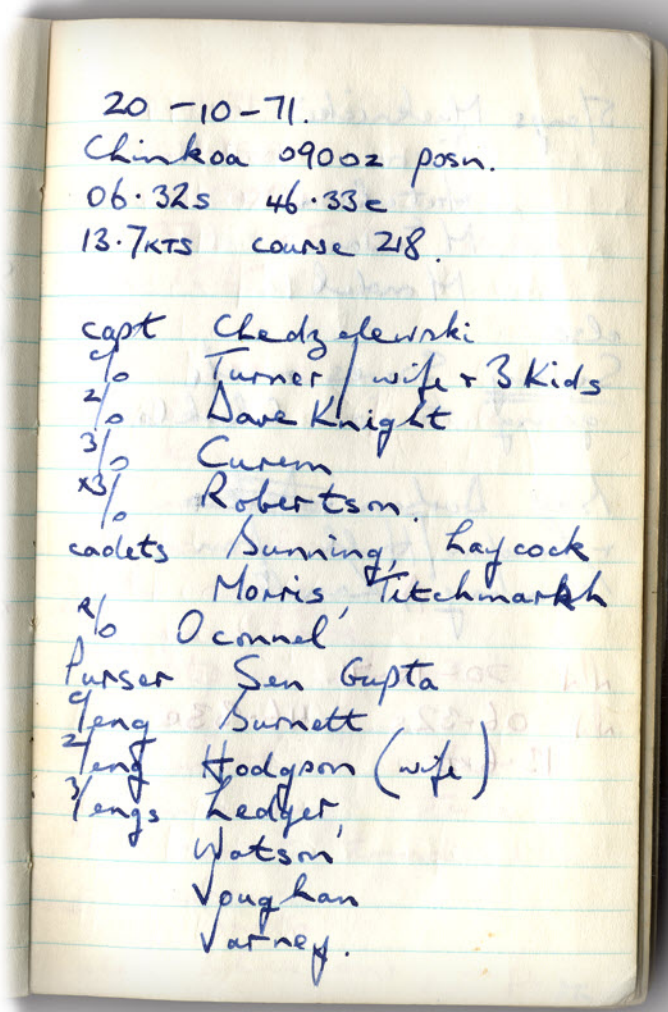 20-10-71.
Chinkoa 0900z posn.
06.32s 46.33e
13.7KTS course 218.
capt Chedzelewski
c/o Turner / wife + 3 Kids
2/o Dave Knight
3/o Curem
x3/o Robertson.
cadets Bunning, Laycock
Morris, Titchmarsh
R/o Oconnel
Purser Sen Gupta
C/eng Burnett
2/eng Hodgson (wife)
3/engs Ledger,
Watson
Voughan
Varney.